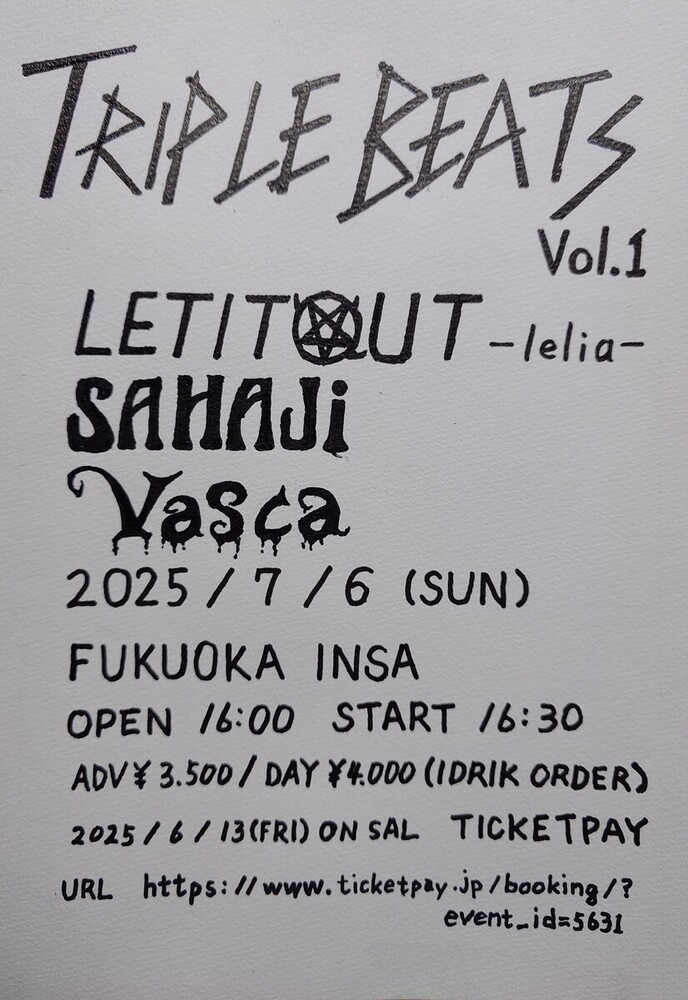 TRIPLE BEATS
Vol.1
LETITOUT -lelia-
SAHAJi
Vasca
2025/7/6 (SUN)
FUKUOKA INSA
OPEN 16:00 START 16:30
ADV¥3.500/DAY ¥4.000 (1DRIK ORDER)
2025/6/13(FRI) ON SAL TICKETPAY
URL https://www.ticketpay.jp/booking/?
event_id=5631